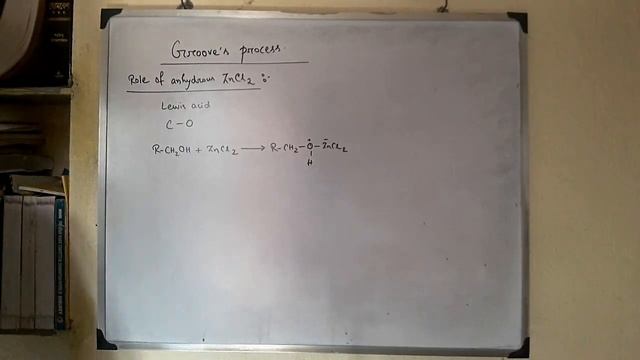 Groove's process.
Role of anhydrous ZnCl2 :-
Lewis acid
C-O
R-CH2OH + ZnCl2 ⟶ R-CH2-O-ZnCl2
H